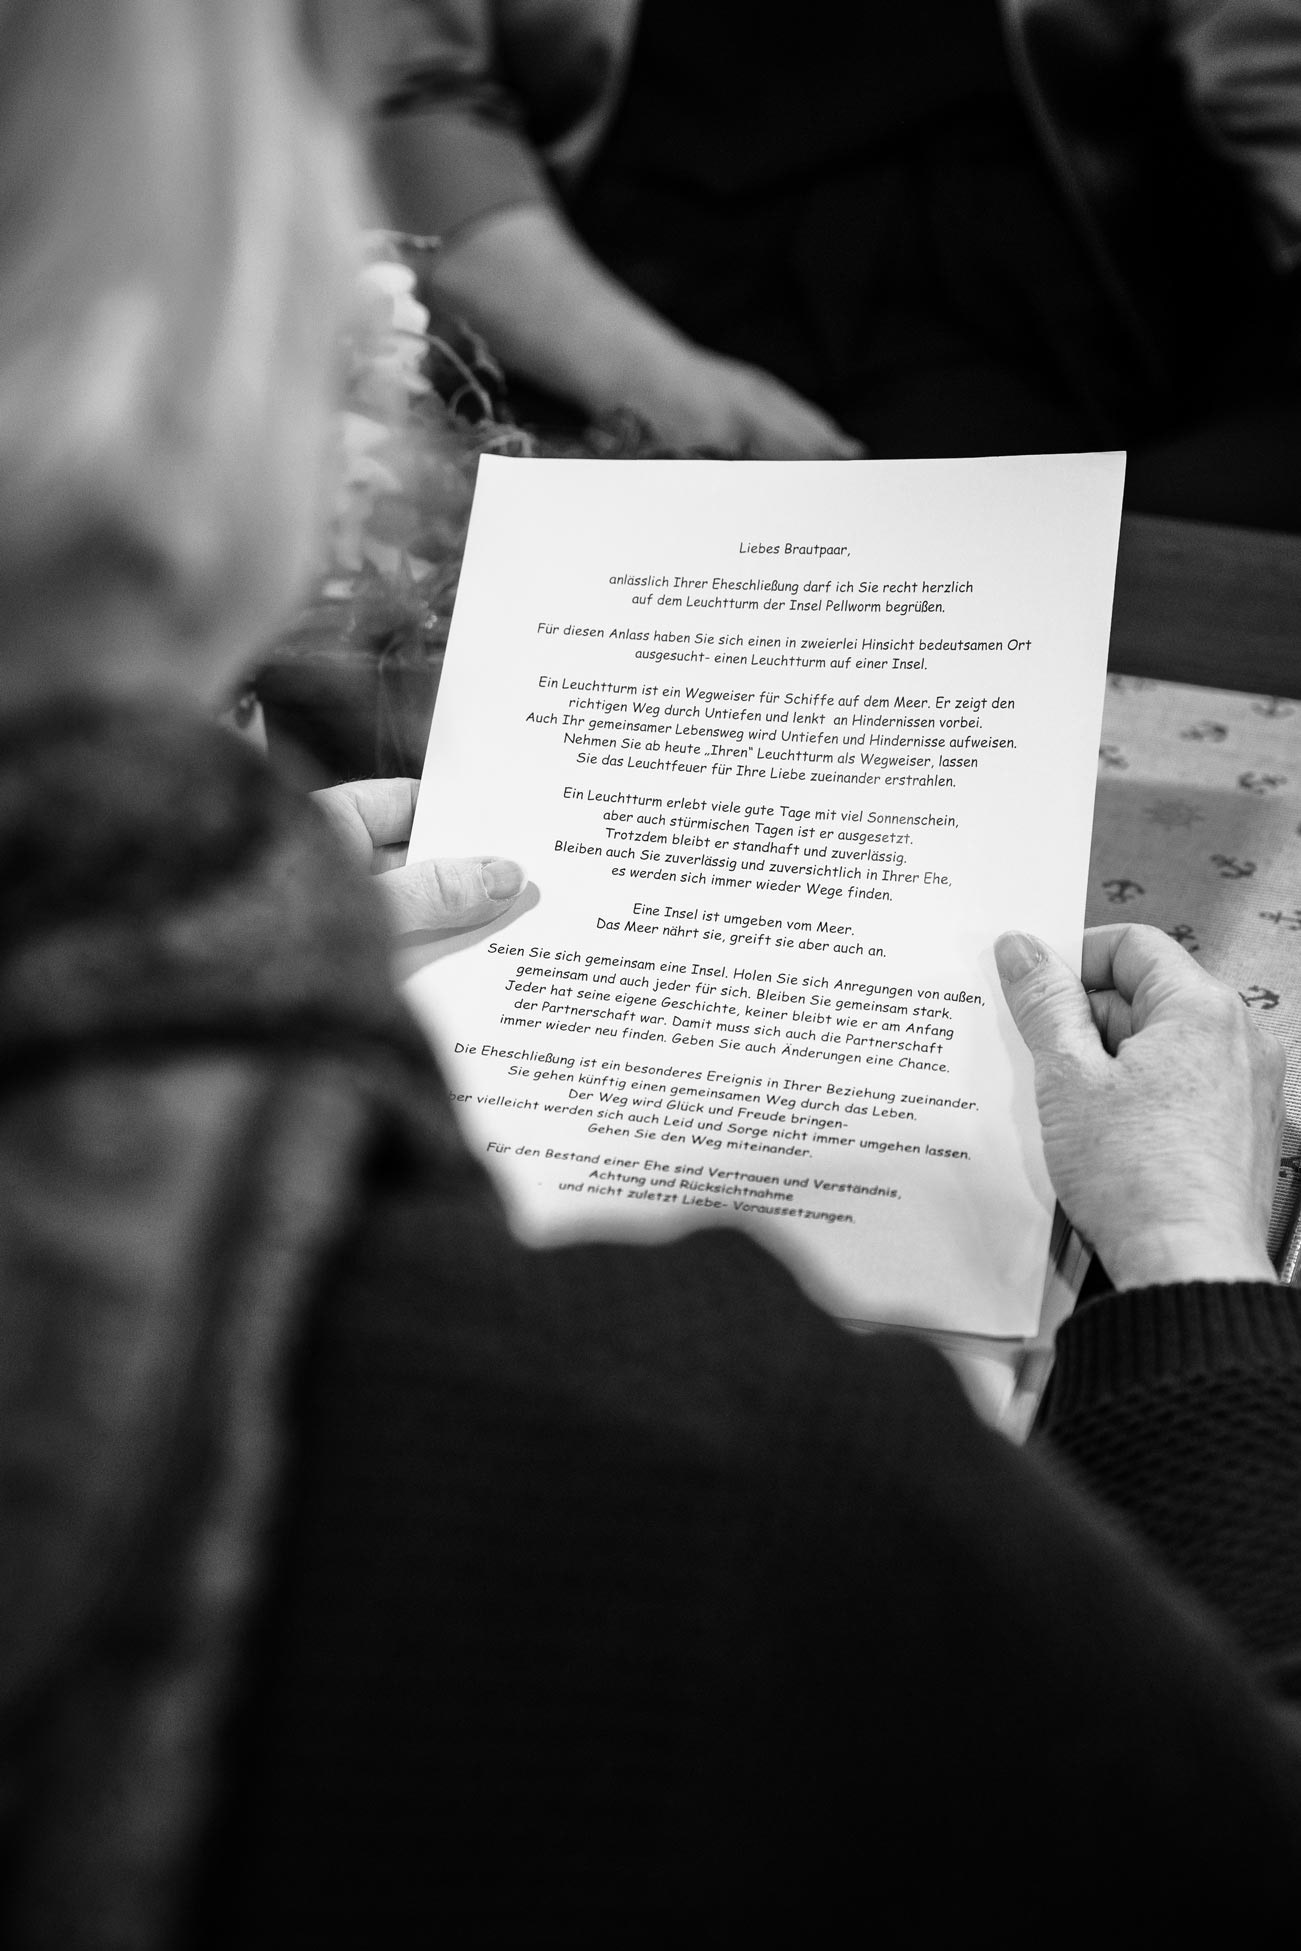 Liebes Brautpaar,
anlässlich Ihrer Eheschließung darf ich Sie recht herzlich
auf dem Leuchtturm der Insel Pellworm begrüßen.
Für diesen Anlass haben Sie sich einen in zweierlei Hinsicht bedeutsamen Ort
ausgesucht- einen Leuchtturm auf einer Insel.
Ein Leuchtturm ist ein Wegweiser für Schiffe auf dem Meer. Er zeigt den
richtigen Weg durch Untiefen und lenkt an Hindernissen vorbei.
Auch Ihr gemeinsamer Lebensweg wird Untiefen und Hindernisse aufweisen.
Nehmen Sie ab heute „Ihren“ Leuchtturm als Wegweiser, lassen
Sie das Leuchtfeuer für Ihre Liebe zueinander erstrahlen.
Ein Leuchtturm erlebt viele gute Tage mit viel Sonnenschein,
aber auch stürmischen Tagen ist er ausgesetzt.
Trotzdem bleibt er standhaft und zuverlässig.
Bleiben auch Sie zuverlässig und zuversichtlich in Ihrer Ehe,
es werden sich immer wieder Wege finden.
Eine Insel ist umgeben vom Meer.
Das Meer nährt sie, greift sie aber auch an.
Seien Sie sich gemeinsam eine Insel. Holen Sie sich Anregungen von außen,
gemeinsam und auch jeder für sich. Bleiben Sie gemeinsam stark.
Jeder hat seine eigene Geschichte, keiner bleibt wie er am Anfang
der Partnerschaft war. Damit muss sich auch die Partnerschaft
immer wieder neu finden. Geben Sie auch Änderungen eine Chance.
Die Eheschließung ist ein besonderes Ereignis in Ihrer Beziehung zueinander.
Sie gehen künftig einen gemeinsamen Weg durch das Leben.
Der Weg wird Glück und Freude bringen-
ber vielleicht werden sich auch Leid und Sorge nicht immer umgehen lassen.
Gehen Sie den Weg miteinander.
Für den Bestand einer Ehe sind Vertrauen und Verständnis,
Achtung und Rücksichtnahme
und nicht zuletzt Liebe- Voraussetzungen.